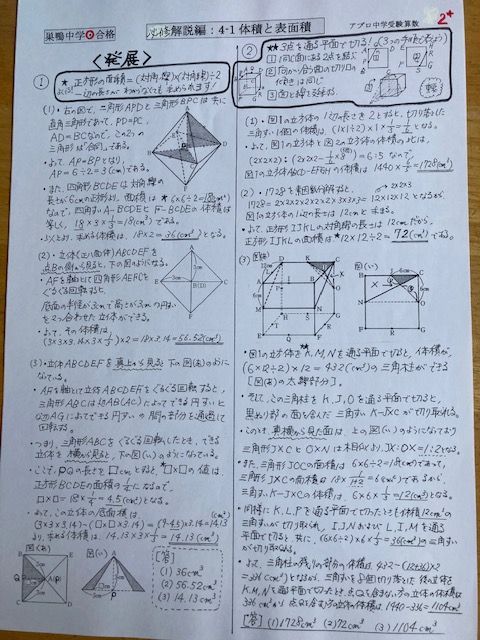 巣鴨中学合格
必修解説編:4-1 体積と表面積
アプロ中学受験算数
2*
〈発展〉
①
★ 正方形の面積=(対角線)×(対角線)÷2
(1)・右の図で、三角形APDと三角形BPCは共に
直角三角形であって、PD=PC,
AD=BCなので、この2つの
三角形は「合同」である。
・よって、AP=BPとなり、
AP=6÷2=3(cm)である。
・また、四角形BCDEは対角線の
長さが6cmの正方形より、面積は★(6×6÷2=)18cm²
なので、四角すいA-BCDEとF-BCDEの体積は
等しく、18×3×1/3=18(cm³)である。
・以上より、求める体積は、18×2=36(cm³)となる。
(2)・立体(正八面体)ABCDEFを
点Bの側から見ると、下の図のようになる。
・AFを軸として四角形AEFCを
ぐるぐる回転すると、
底面の半径が3cmで高さが3cmの円すい
を2つ合わせた立体ができる。
・よって、その体積は、
(3×3×3.14×3×1/3)×2=18×3.14=56.52(cm³)
(3)・立体ABCDEFを真上から見ると下の図(あ)のように
なっている。
・AFを軸として立体ABCDEFをぐるぐる回転すると、
三角形ABCは辺AB(AC)によってできる円すいと
・つまり、三角形ABCをぐるぐる回転したとき、できる
立体を横から見ると、下の図(い)のようになっている。
・ここで、PQの長さを□cmとすると、★□×□の値は、
正方形BCDEの面積の1/4になるので、
□×□=18×1/4=4.5(cm²)となる。
・よって、この立体の底面積は、
(3×3×3.14)-(□×□×3.14)=(9-4.5)×3.14=14.13
より、求める体積は、14.13×3×1/3=14.13(cm³)
図(あ)
図(い)
[答]
(1) 36cm³
(2) 56.52cm³
(3) 14.13cm³
②
★★3点を通る平面で切る!
① 同じ面にある2点を結ぶ
③ 図と線を延長する。
(1)・図1の立方体の1辺の長さを2とすると、切り落とした
三角すい1個の体積は、(1×1÷2)×1×1/3=1/6となる。
・よって、図1の立方体と図2の立体の体積の比は、
(2×2×2):(2×2×2-1/6×8)=6:5なので
図1の立方体ABCD-EFGHの体積は1440×6/5=1728(cm³)
(2)・1728を素因数分解すると、
1728=2×2×2×2×2×2×3×3×3=12×12×12となるから、
図1の立方体の1辺の長さは12cmと求まる。
・よって、正方形IJKLの対角線の長さは12cmだから、
正方形IJKLの面積は★12×12÷2=72(cm²)である。
(3)
図(あ)
図(い)
・図1の立方体をK,M,Nを通る平面で切ると、体積が
(6×12÷2)×12=432(cm³)の三角柱ができる
[図(あ)の太線部分]。
・そして、この三角柱をK,J,Oを通る平面で切ると、
黒ぬり部の面を含んだ三角すいK-JXCが切り取れる。
・このとき、真横から見た面は、上の図(い)のようになり
三角形JXCとOXNは相似より、JX:OX=1:2となる。
・また、三角形JOCの面積は6×6÷2=18(cm²)であって、
三角形JXCの面積は18×1/(1+2)=6(cm²)であるから、
三角すいK-JXCの体積は、6×6×1/3=12(cm³)となる。
・同様にK,L,Pを通る平面で切ったときも体積12cm³の
三角すいが切り取られ、I,J,NおよびL,I,Mを通る
平面で切ると、共に、(6×6÷2)×6×1/3=36(cm³)の三角すい
が切り取れる。
・よって、三角柱の残りの部分の体積は、432-(12+36)×2
=336(cm³)となるから、三角すいを8個切り落とした後の立体を
K,M,Nを通る平面で切ったとき、点Qを含まない方の立体の体積は
336cm³だから、点Qを含む方の立体の体積は1440-336=1104cm³
[答] (1)1728cm³ (2)72cm² (3)1104cm³